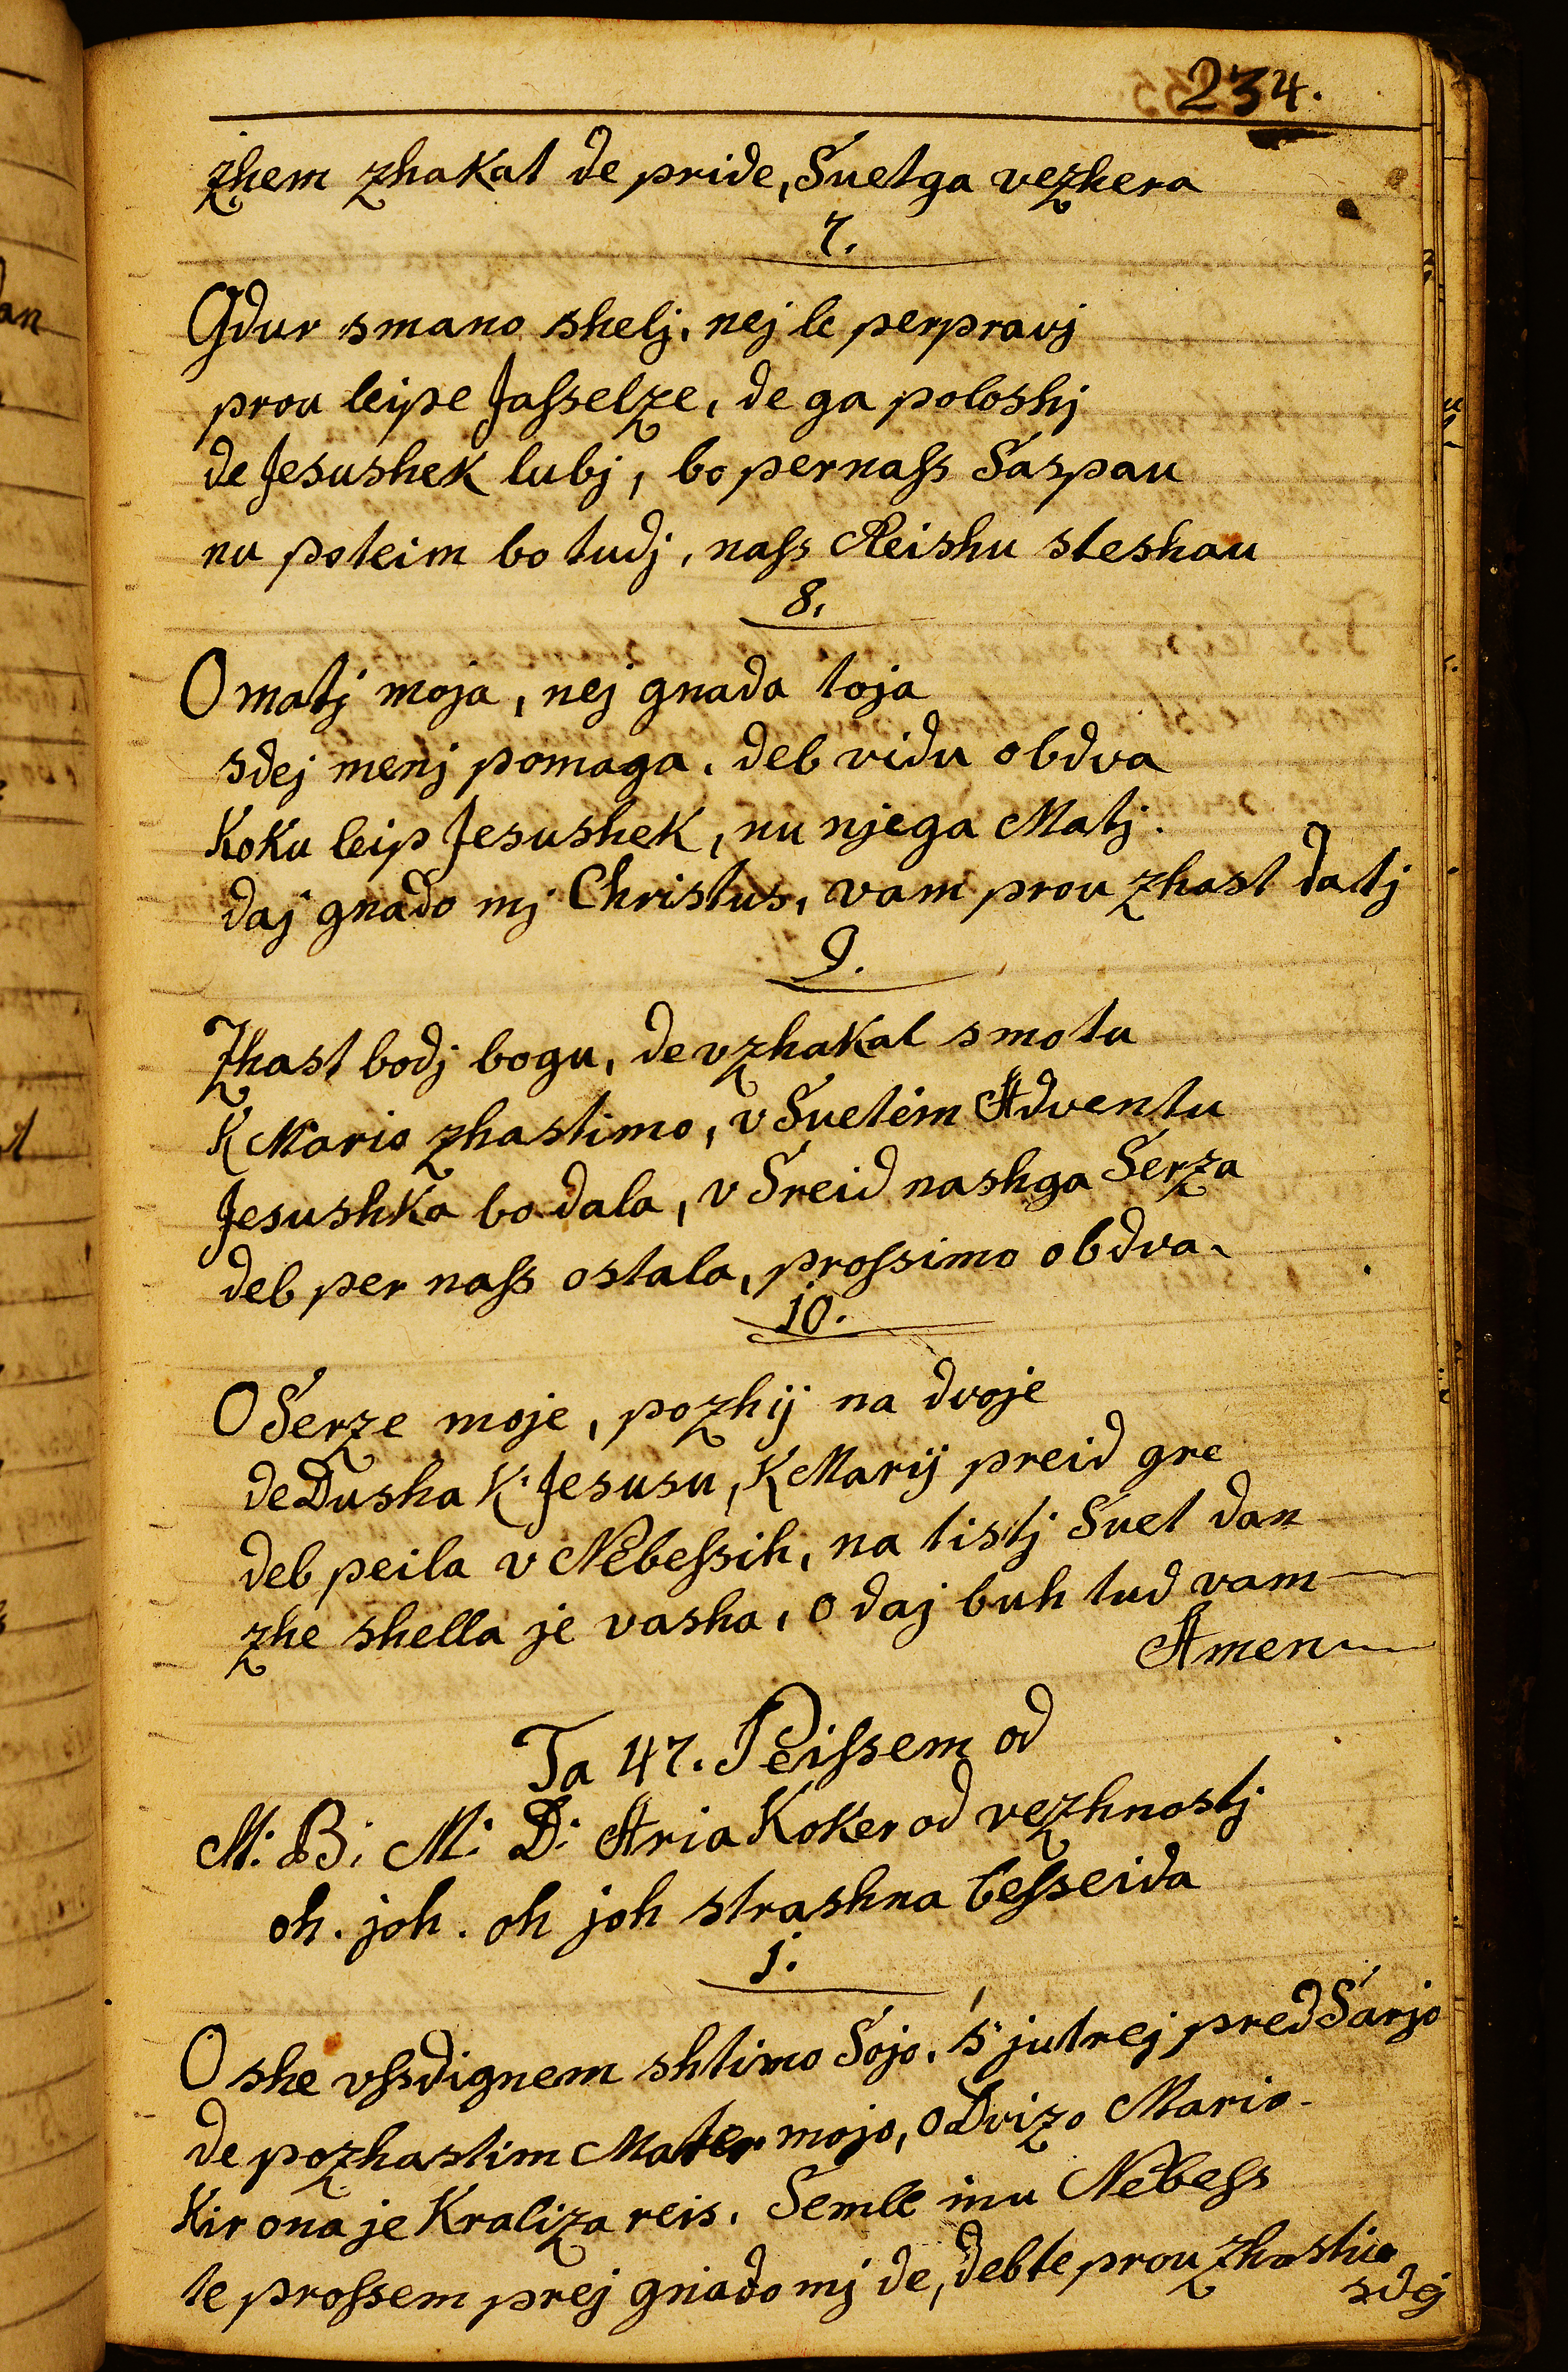 234.
zhem zhakat de pride, Suetga vezhera
7.
Gdur smano shelj, nej le perpravj
prou leipe Jasselze, de ga poloshj
de Jesushek lubj, bo pernass Saspau
nu poteim bo tudj, nass Reishu steshau
8.
O matj moja, nej gnada toja
sdej menj pomaga, deb vidu obdva
Koku leip Jesushek, nu njega Matj.
daj gnado mj Christus, vam prou zhast datj
9.
Zhast bodj bogu, de vzhakal smo tu
K Mario zhastimo, v Suetem Adventu
Jesushka bo dala, v Sreid nashga Serza
deb per nass ostala, prossimo obdva.
10.
O Serze moje, pozhij na dvoje
de Dusha K Jesusu, K Marij preid gre
deb peila v Nebessih, na tistj Suet dan
zhe shella je vasha, o daj buh tud vam
Amen
Ta 47. Peissem od
M: B: M: D: Aria Koker od vezhnostj
oh. joh. oh joh strashna besseida
1.
O she vssdignem shtimo Sojo, s' jutrej pred Sarjo
de pozhastim Mater mojo, o Dvizo Mario.
Kir ona je Kraliza reis, Semle inu Nebess
te prossem prej gnado mj de, deb te prou zhastiu
sdej